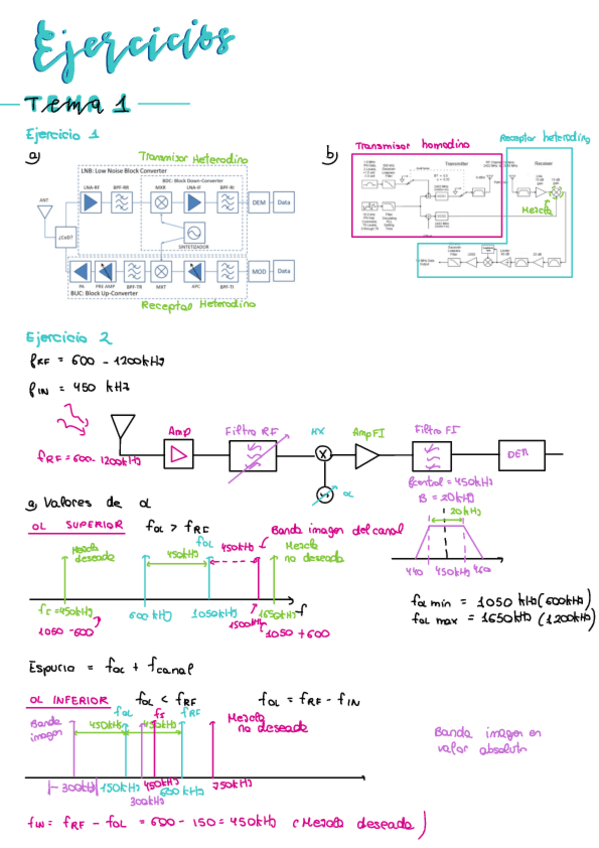 Ejercicios
TEMA 1
Ejercicio 1
a)
Transmisor Heterodino
LNB: Low Noise Block Converter
BDC: Block Down-Converter
ANT
LNA-RF
BPF-RR
MXR
LNA-IF
BPF-RI
DEM
Data
¿CoB?
SINTETIZADOR
PA
PRE AMP
BPF-TR
MXT
APC
BPF-TI
MOD
Data
BUC: Block Up-Converter
Receptor Heterodino
b)
Transmisor homodino
Receptor heterodino
Transmitter
Receiver
Mezcla
Ejercicio 2
fRF = 600 - 1200kHz
fIN = 450 kHz
fRF = 600-1200kHz
Amp
Filtro RF
MX
Amp FI
Filtro FI
DEM
OL
fcentral = 450kHz
B = 20kHz
a) Valores de ol
OL SUPERIOR
fOL > fRF
Banda imagen del canal
Mezcla deseada
450kHz
fOL
450kHz
Mezcla no deseada
20kHz
440 450kHz 460
fs = 450kHz
1050 - 600
600 kHz
1050kHz
1500kHz
1650kHz
f
1050 + 600
fOL min = 1050 kHz (600kHz)
fOL max = 1650kHz (1200kHz)
Espurio = fOL + fcanal
OL INFERIOR
fOL < fRF
fOL = fRF - fIN
Banda imagen
450kHz
fOL
fs
450kHz
fRF
Mezcla no deseada
Banda imagen en valor absoluto
|-300kHz|
150kHz
300kHz
450kHz
600 kHz
750kHz
fIN = fRF - fOL = 600 - 150 = 450kHz (Mezcla deseada)